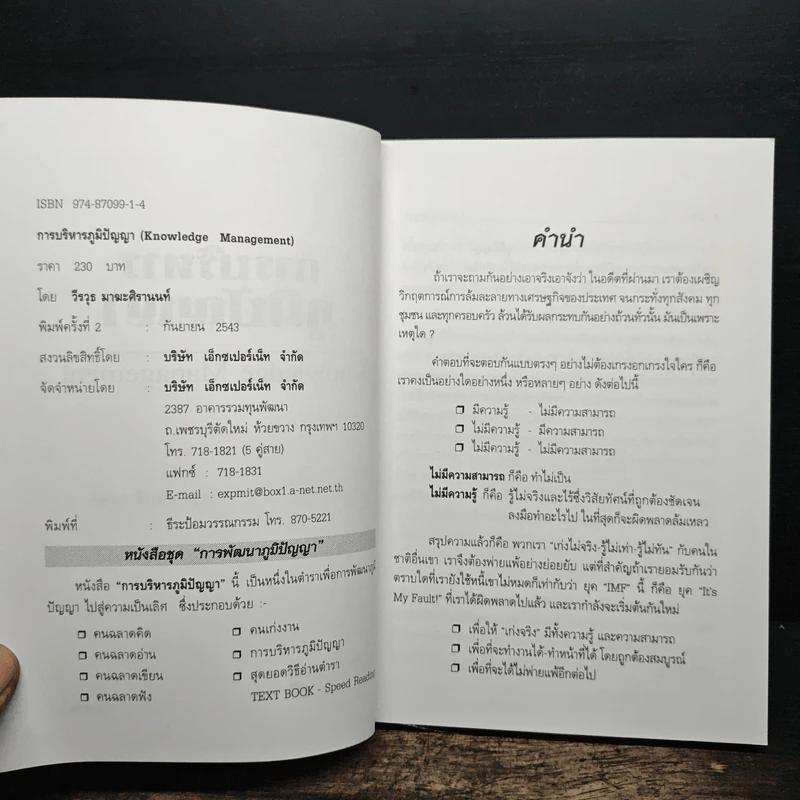 ISBN 974-87099-1-4
การบริหารภูมิปัญญา (Knowledge Management)
ราคา 230 บาท
โดย วีรวุธ มาฆะศิรานนท์
พิมพ์ครั้งที่ 2 : กันยายน 2543
สงวนลิขสิทธิ์โดย : บริษัท เอ็กซเปอร์เน็ท จำกัด
จัดจำหน่ายโดย : บริษัท เอ็กซเปอร์เน็ท จำกัด
2387 อาคารรวมทุนพัฒนา
ถ.เพชรบุรีตัดใหม่ ห้วยขวาง กรุงเทพฯ 10320
โทร. 718-1821 (5 คู่สาย)
แฟกซ์ : 718-1831
E-mail : expmit@box1.a-net.net.th
พิมพ์ที่ : ธีระป้อมวรรณกรรม โทร. 870-5221
หนังสือชุด "การพัฒนาภูมิปัญญา"
หนังสือ "การบริหารภูมิปัญญา" นี้ เป็นหนึ่งในตำราเพื่อการพัฒนาภูมิ
ปัญญา ไปสู่ความเป็นเลิศ ซึ่งประกอบด้วย :-
❒ คนฉลาดคิด ❒ คนเก่งงาน
❒ คนฉลาดอ่าน ❒ การบริหารภูมิปัญญา
❒ คนฉลาดเขียน ❒ สุดยอดวิธีอ่านตำรา
❒ คนฉลาดฟัง TEXT BOOK - Speed Reading
คำนำ
ถ้าเราจะถามกันอย่างเอาจริงเอาจังว่า ในอดีตที่ผ่านมา เราต้องเผชิญ
วิกฤตการณ์การล้มละลายทางเศรษฐกิจของประเทศ จนกระทั่งทุกสังคม ทุก
ชุมชน และทุกครอบครัว ล้วนได้รับผลกระทบกันอย่างถ้วนทั่วนั้น มันเป็นเพราะ
เหตุใด ?
คำตอบที่จะตอบกันแบบตรงๆ อย่างไม่ต้องเกรงอกเกรงใจใคร ก็คือ
เราคงเป็นอย่างใดอย่างหนึ่ง หรือหลายๆ อย่าง ดังต่อไปนี้
❒ มีความรู้ - ไม่มีความสามารถ
❒ ไม่มีความรู้ - มีความสามารถ
❒ ไม่มีความรู้ - ไม่มีความสามารถ
ไม่มีความสามารถ ก็คือ ทำไม่เป็น
ไม่มีความรู้ ก็คือ รู้ไม่จริงและไร้ซึ่งวิสัยทัศน์ที่ถูกต้องชัดเจน
ลงมือทำอะไรไป ในที่สุดก็จะผิดพลาดล้มเหลว
สรุปความแล้วก็คือ พวกเรา "เก่งไม่จริง-รู้ไม่เท่า-รู้ไม่ทัน" กับคนใน
ชาติอื่นเขา เราจึงต้องพ่ายแพ้อย่างย่อยยับ แต่ที่สำคัญถ้าเรายอมรับกันว่า
ตราบใดที่เรายังใช้หนี้เขาไม่หมดก็เท่ากับว่า ยุค "IMF" นี้ ก็คือ ยุค "It's
My Fault!" ที่เราได้ผิดพลาดไปแล้ว และเรากำลังจะเริ่มต้นกันใหม่
❒ เพื่อให้ "เก่งจริง" มีทั้งความรู้ และความสามารถ
❒ เพื่อที่จะทำงานได้-ทำหน้าที่ได้ โดยถูกต้องสมบูรณ์
❒ เพื่อที่จะได้ไม่พ่ายแพ้อีกต่อไป